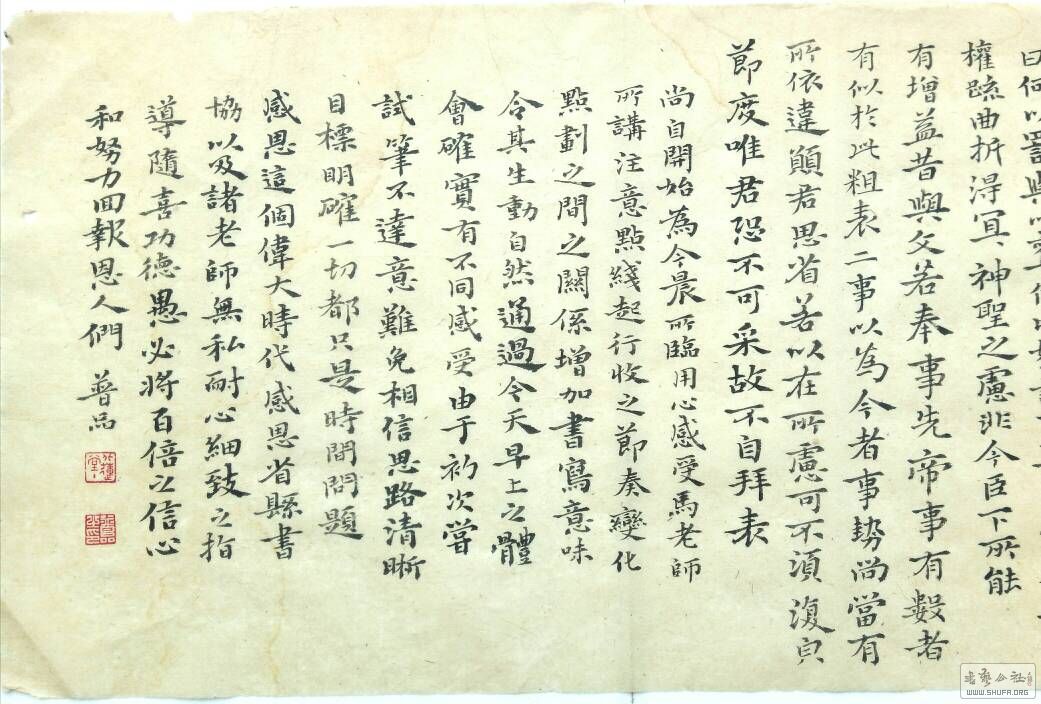 曰何以
權疏曲折得冥神聖之慮非今臣下所能
有增益昔與文若奉事先帝事有數者
有似於此粗表二事以為今者事勢尚當有
所依違願君思省若以在所慮可不須復宾
節度唯君恐不可采故不自拜表
尚自開始為今晨所臨用心感受馬老師
所講注意點綫起行收之節奏變化
點劃之間之關係增加書寫意味
令其生動自然通過今天早上之體
會確實有不同感受由于初次嘗
試筆不達意難免相信思路清晰
目標明確一切都只是時間問題
感恩這個偉大時代感恩省縣書
協以及諸老師無私耐心細致之指
導隨喜功德愚必將百倍之信心
和努力回報恩人們 普品
書藝公社
WWW.SHUFA.ORG